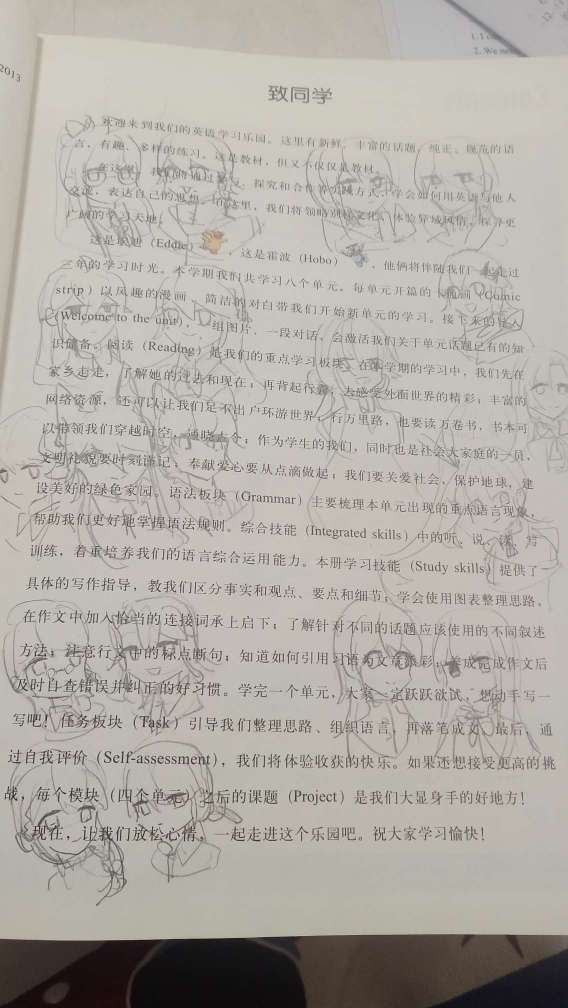 2013
致同学
欢迎来到我们的英语学习乐园。这里有新鲜、丰富的话题，纯正、规范的语
言，有趣、多样的练习。这是教材，但又不仅仅是教材。
在这里，我们将通过 探究和合作 方式，学会如何用英语与他人
交流，表达自己的思想。在这里，我们将领略别样文化，体验异域风情，探寻更
广阔的学习天地。
这是埃迪（Eddie） ，这是霍波（Hobo） ，他俩将伴随我们一起走过
三年的学习时光。本学期我们共学习八个单元。每单元开篇的卡通画（Comic
strip）以风趣的漫画、简洁的对白带我们开始新单元的学习。接下来的导入
（Welcome to the unit），一组图片，一段对话，会激活我们关于单元话题已有的知
识储备。阅读（Reading）是我们的重点学习板块。在本学期的学习中，我们先在
家乡走走，了解她的过去和现在；再背起行囊，去感受外面世界的精彩；丰富的
网络资源，还可以让我们足不出户环游世界。行万里路，也要读万卷书，书本可
以带领我们穿越时空、通晓古今；作为学生的我们，同时也是社会大家庭的一员，
文明礼貌要时刻谨记；奉献爱心要从点滴做起；我们要关爱社会，保护地球，建
设美好的绿色家园。语法板块（Grammar）主要梳理本单元出现的重点语言现象，
帮助我们更好地掌握语法规则。综合技能（Integrated skills）中的听、说、读、写
训练，着重培养我们的语言综合运用能力。本册学习技能（Study skills）提供了
具体的写作指导，教我们区分事实和观点、要点和细节；学会使用图表整理思路，
在作文中加入恰当的连接词承上启下；了解针对不同的话题应该使用的不同叙述
方法；注意行文中的标点断句；知道如何引用习语为文章添彩；养成完成作文后
及时自查错误并纠正的好习惯。学完一个单元，大家一定跃跃欲试，想动手写一
写吧！任务板块（Task）引导我们整理思路、组织语言，再落笔成文。最后，通
过自我评价（Self-assessment），我们将体验收获的快乐。如果还想接受更高的挑
战，每个模块（四个单元）之后的课题（Project）是我们大显身手的好地方！
现在，让我们放松心情，一起走进这个乐园吧。祝大家学习愉快！